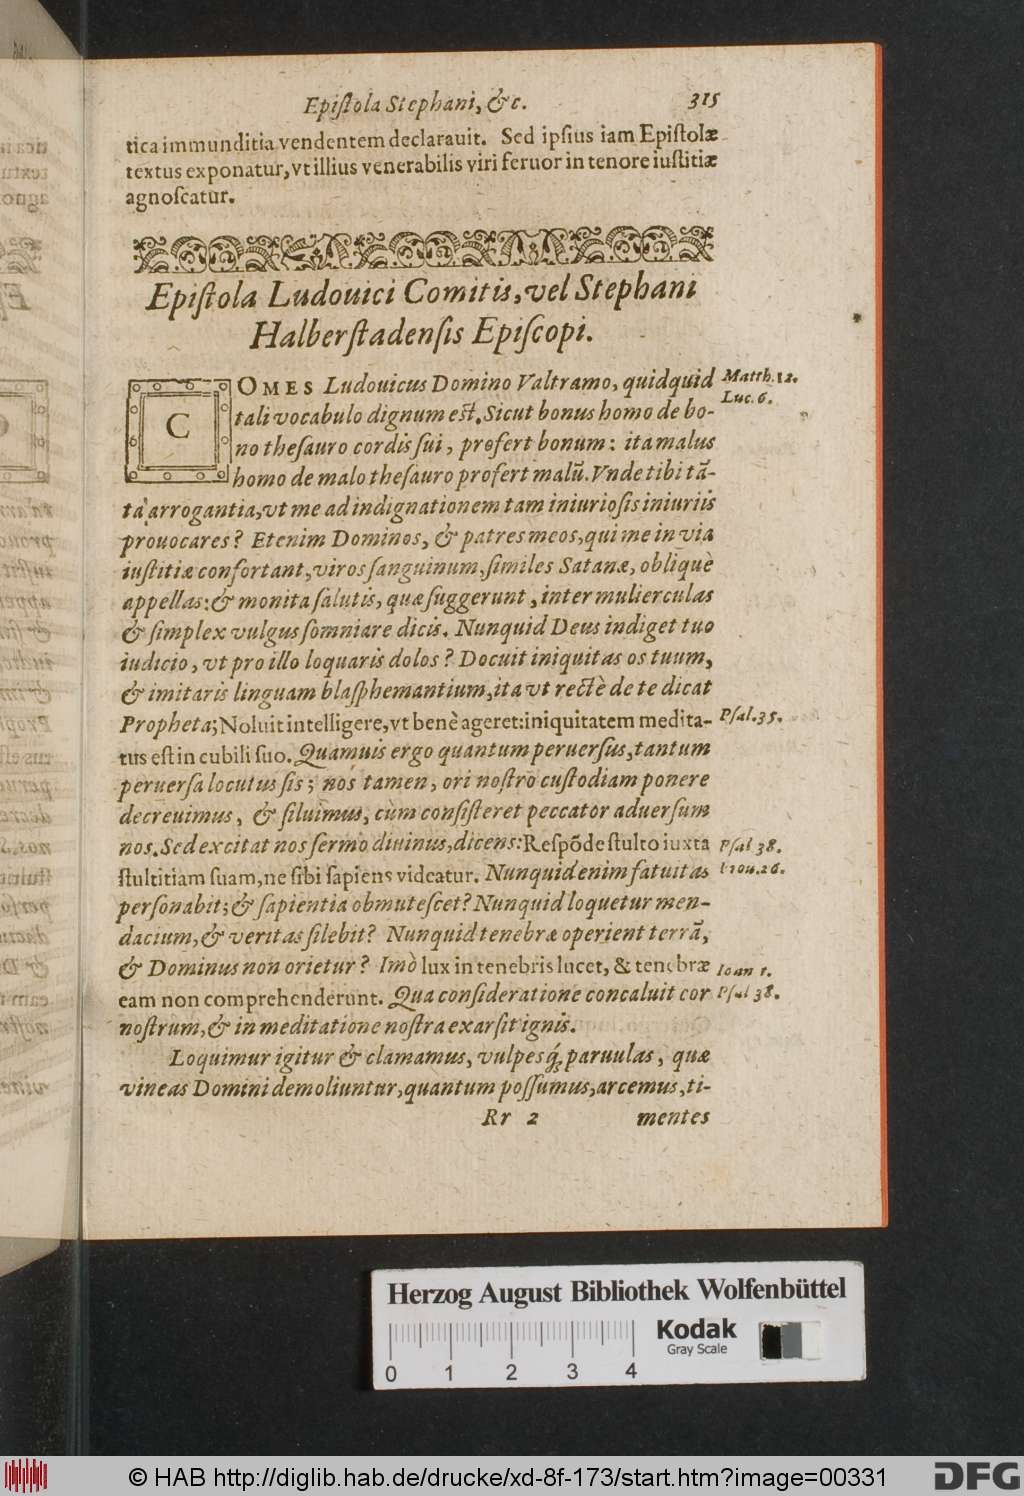 Epiſtola Stephani, &c. 315
tica immunditia vendentem declarauit. Sed ipſius iam Epiſtolæ
textus exponatur, vt illius venerabilis viri feruor in tenore iuſtitiæ
agnoſcatur.
Epiſtola Ludouici Comitis, vel Stephani
Halberſtadenſis Epiſcopi.
COMES Ludouicus Domino Valtramo, quidquid
Matth. 12.
tali vocabulo dignum eſt. Sicut bonus homo de bo-
Luc. 6.
no theſauro cordis ſui, profert bonum: ita malus
homo de malo theſauro profert malũ. Vnde tibi tã-
ta arrogantia, vt me ad indignationem tam iniurioſis iniuriis
prouocares? Etenim Dominos, & patres meos, qui me in via
iuſtitiæ confortant, viros ſanguinum, ſimiles Satanæ, obliquè
appellas: & monita ſalutis, quæ ſuggerunt, inter mulierculas
& ſimplex vulgus ſomniare dicis. Nunquid Deus indiget tuo
iudicio, vt pro illo loquaris dolos? Docuit iniquitas os tuum,
& imitaris linguam blaſphemantium, ita vt rectè de te dicat
Propheta; Noluit intelligere, vt benè ageret: iniquitatem medita-
Pſal. 35.
tus eſt in cubili ſuo. Quamuis ergo quantum peruerſus, tantum
peruerſa locutus ſis; nos tamen, ori noſtro cuſtodiam ponere
decreuimus, & ſiluimus, cùm conſiſteret peccator aduerſum
nos. Sed excitat nos ſermo diuinus, dicens: Reſpõde ſtulto iuxta
Pſal 38.
ſtultitiam ſuam, ne ſibi ſapiens videatur. Nunquid enim fatuitas
Prou. 26.
perſonabit; & ſapientia obmuteſcet? Nunquid loquetur men-
dacium, & veritas ſilebit? Nunquid tenebræ operient terrã,
& Dominus non orietur? Imò lux in tenebris lucet, & tenebræ
Ioan 1.
eam non comprehenderunt. Qua conſideratione concaluit cor
Pſal 38.
noſtrum, & in meditatione noſtra exarſit ignis.
Loquimur igitur & clamamus, vulpesq́; paruulas, quæ
vineas Domini demoliuntur, quantum poſſumus, arcemus, ti-
Rr 2 mentes
Herzog August Bibliothek Wolfenbüttel
Kodak
Gray Scale
0 1 2 3 4
© HAB http://diglib.hab.de/drucke/xd-8f-173/start.htm?image=00331
DFG